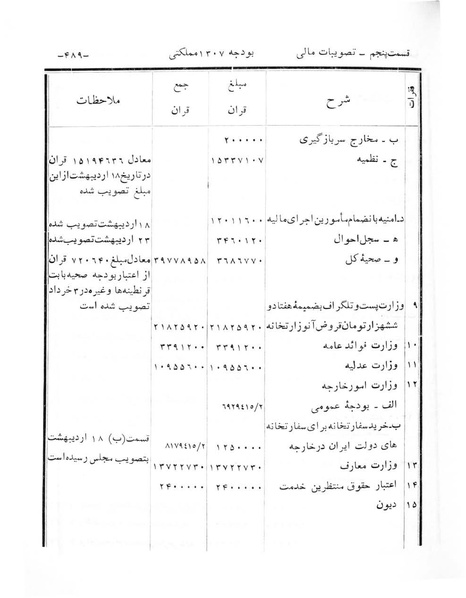 قسمت پنجم – تصویبات مالی بودجه ۱۳۰۷ مملکتی –۴۸۹–
فقرات شرح مبلغ قران جمع قران ملاحظات
ب – مخارج سربازگیری ۲۰۰۰۰۰
ج – نظمیه ۱۵۳۳۷۱۰۷ معادل ۱۵۱۹۴۶۳۶ قران
در تاریخ ۱۸ اردیبهشت از این
مبلغ تصویب شده
د. امنیه با نضمام مأمورین اجرای مالیه ۱۲۰۱۱۶۰۰ ۱۸ اردیبهشت تصویب شده
ه – سجل احوال ۳۴۶۰۱۲۰ ۲۳ اردیبهشت تصویب شده
و – صحیهٔ کل ۳۶۸۶۷۷۰ ۳۹۷۷۸۹۵۸ معادل مبلغ ۷۲۰۶۴۰ قران
از اعتبار بودجه صحیه بابت
قرنطینه‌ها و غیره در ۳ خرداد
۹ وزارت پست و تلگراف بضمیمهٔ هفتاد و تصویب شده است
ششهزار تومان قروض آنوزارتخانه ۲۱۸۲۵۹۲۰ ۲۱۸۲۵۹۲۰
۱۰ وزارت فوائد عامه ۳۳۹۱۲۰۰ ۳۳۹۱۲۰۰
۱۱ وزارت عدلیه ۱۰۹۵۵۶۰۰ ۱۰۹۵۵۶۰۰
۱۲ وزارت امور خارجه
الف – بودجهٔ عمومی ۶۹۲۹٤۱۵/۲
ب. خرید سفارتخانه برای سفارتخانه
های دولت ایران در خارجه ۱۲۵۰۰۰۰ ۸۱۷۹٤۱۵/۲ قسمت (ب) ۱۸ اردیبهشت
۱۳ وزارت معارف ۱۳۷۲۲۷۳۰ ۱۳۷۲۲۷۳۰ بتصویب مجلس رسیده است
۱۴ اعتبار حقوق منتظرین خدمت ۲۴۰۰۰۰۰ ۲۴۰۰۰۰۰
۱۵ دیون